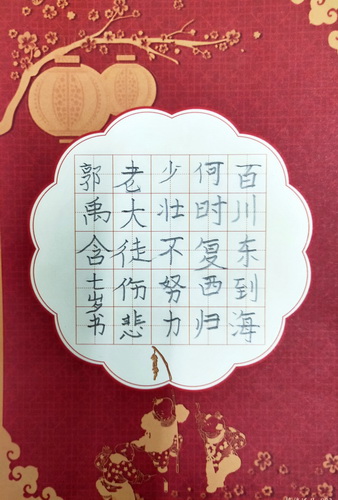 百川东到海
何时复西归
少壮不努力
老大徒伤悲
郭禹含七岁书